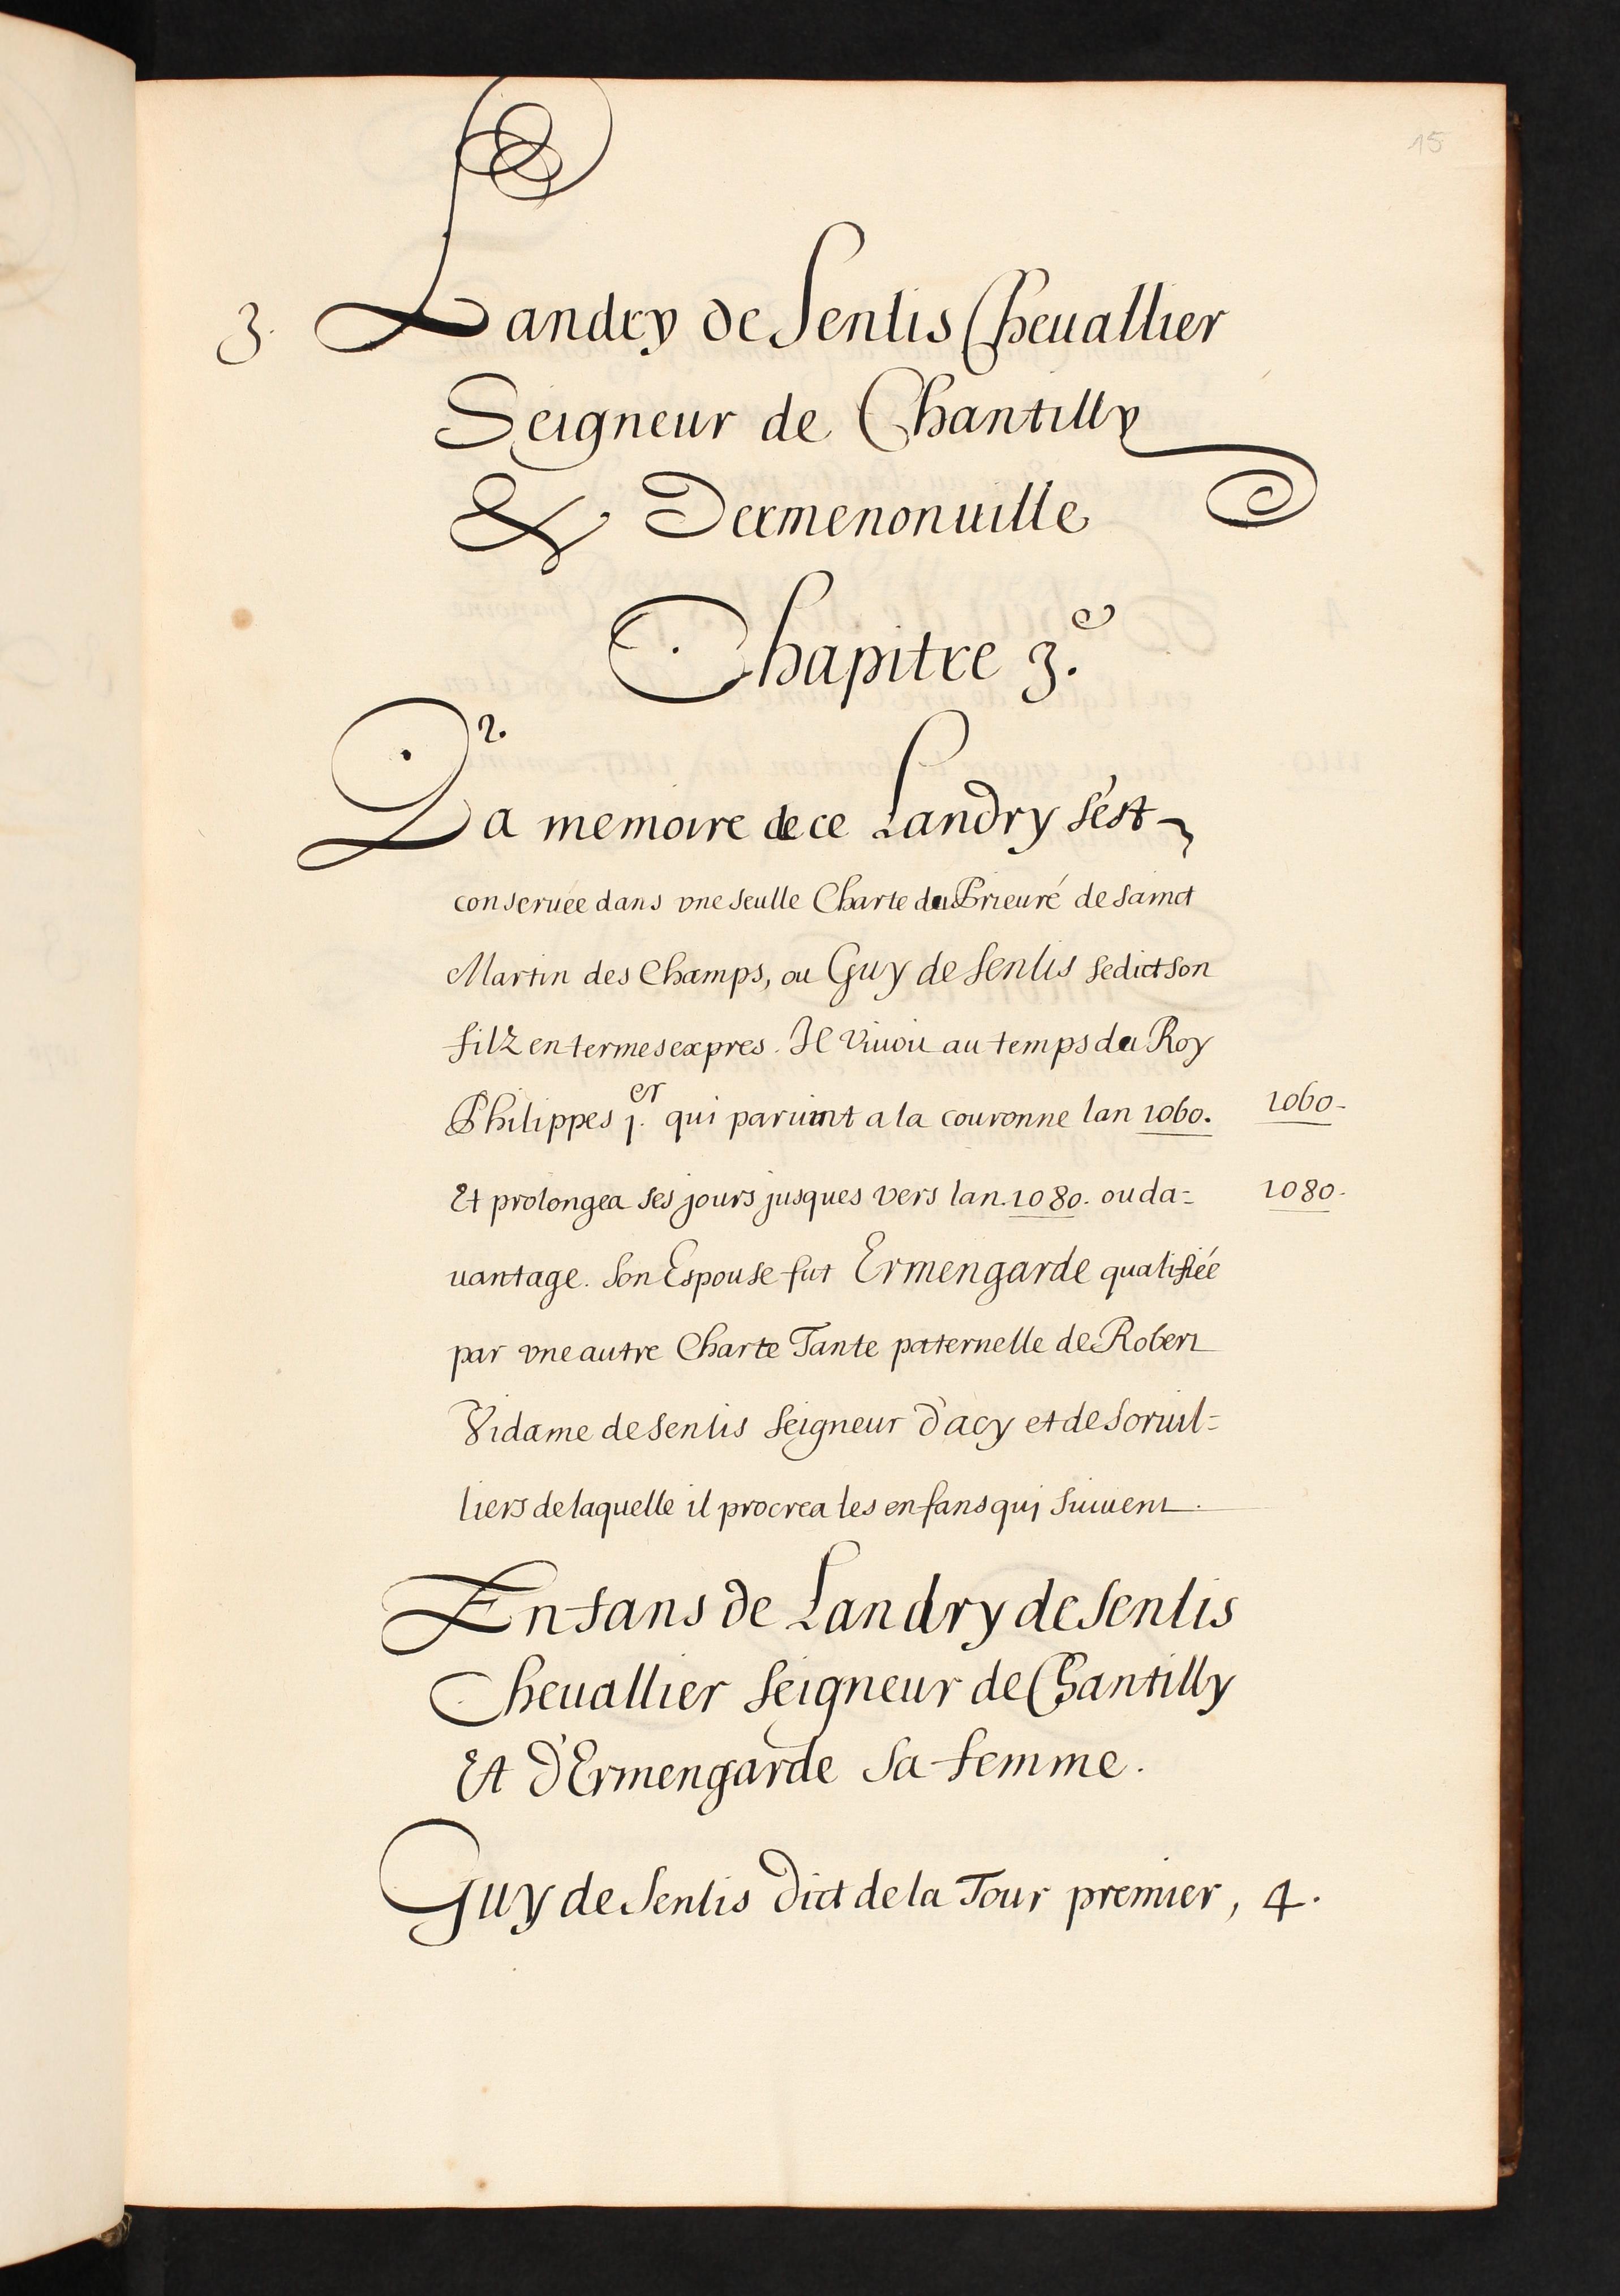 15
3. Landry de Senlis Cheuallier
Seigneur de Chantilly
& Dermenonuille
Chapitre 3.e
2.
La memoire de ce Landry s'est
conseruée dans vne seulle Charte du Prieuré de sainct
Martin des Champs, ou Guy de Senlis se dict son
filz en termes expres. Il Viuoit au temps du Roy
Philippes j.er qui paruint a la couronne lan 1060. 1060.
Et prolongea ses jours jusques vers lan. 1080. ou da= 1080.
uantage. Son Espouse fut Ermengarde qualifiée
par vne autre Charte Tante paternelle de Robert
Vidame de Senlis Seigneur d'acy et de Soruil=
liers de laquelle il procrea les enfans quj suiuent.
Enfans de Landry de Senlis
Cheuallier Seigneur de Chantilly
Et d'Ermengarde sa femme.
Guy de Senlis dict de la Tour premier, 4.